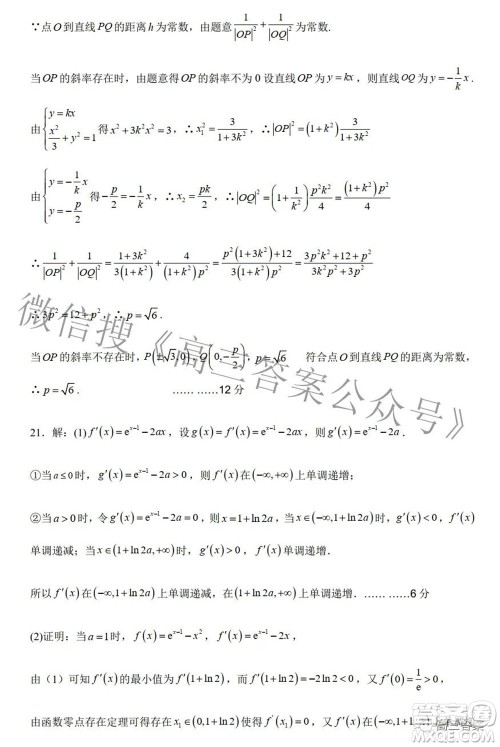 ∵点O到直线PQ的距离h为常数，由题意 1/|OP|² + 1/|OQ|² 为常数.
当OP的斜率存在时，由题意得OP的斜率不为0设直线OP为y=kx，则直线OQ为y=-(1/k)x.
由{y=kx, x²/3+y²=1 得x²+3k²x²=3，∴x₁²=3/(1+3k²)，∴|OP|²=(1+k²)·3/(1+3k²)
由{y=-(1/k)x, y=-p/2 得-p/2=-(1/k)x，∴x₂=pk/2，∴|OQ|²=(1+1/k²)p²k²/4=(1+k²)p²/4
∴1/|OP|²+1/|OQ|²=(1+3k²)/(3(1+k²))+4/((1+k²)p²)=(p²(1+3k²)+12)/(3(1+k²)p²)=(3p²k²+12+p²)/(3k²p²+3p²)
∴3p²=12+p²，∴p=√6.
当OP的斜率不存在时，P(±√3,0)，Q(0,-p/2)，∴p=√6 符合点O到直线PQ的距离为常数，
∴p=√6. ……………12分
21．解：(1)f′(x)=e^(x-1)-2ax，设g(x)=f′(x)=e^(x-1)-2ax，则g′(x)=e^(x-1)-2a．
①当a≤0时，g′(x)=e^(x-1)-2a>0，则f′(x)在(-∞,+∞)上单调递增；
②当a>0时，令g′(x)=e^(x-1)-2a=0，则x=1+ln2a，当x∈(-∞,1+ln2a)时，g′(x)<0，f′(x)
单调递减；当x∈(1+ln2a,+∞)时，g′(x)>0，f′(x)单调递增．
所以f′(x)在(-∞,1+ln2a)上单调递减，在(1+ln2a,+∞)上单调递增．……………6分
(2)证明：当a=1时，f(x)=e^(x-1)-x²，f′(x)=e^(x-1)-2x，
由（1）可知f′(x)的最小值为f′(1+ln2)，而f′(1+ln2)=-2ln2<0，又f′(0)=1/e>0，
由函数零点存在定理可得存在x₁∈(0,1+ln2)使得f′(x₁)=0，又f′(x)在
微信搜《高三答案公众号》
高三答案